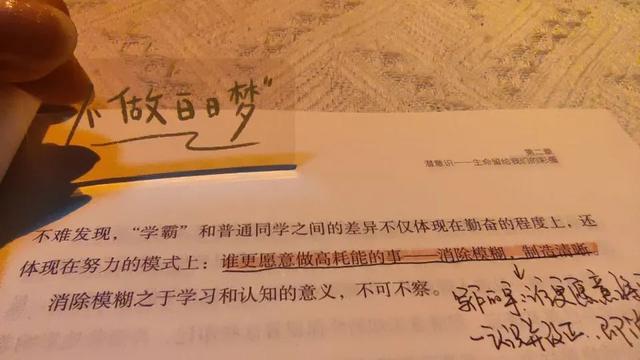 不做白日梦"
第二章
潜意识——生命留给我们的彩蛋
不难发现,“学霸”和普通同学之间的差异不仅体现在勤奋的程度上,还
体现在努力的模式上:谁更愿意做高耗能的事——消除模糊,制造清晰。
消除模糊之于学习和认知的意义,不可不察。